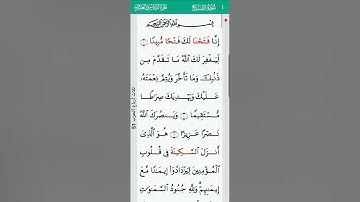 سُورَةُ الفَتْحِ
بِسْمِ اللَّهِ الرَّحْمَٰنِ الرَّحِيمِ
إِنَّا فَتَحْنَا لَكَ فَتْحًا مُّبِينًا ۝١
لِّيَغْفِرَ لَكَ ٱللَّهُ مَا تَقَدَّمَ مِن
ذَنۢبِكَ وَمَا تَأَخَّرَ وَيُتِمَّ نِعْمَتَهُۥ
عَلَيْكَ وَيَهْدِيَكَ صِرَٰطًا
مُّسْتَقِيمًا ۝٢ وَيَنصُرَكَ ٱللَّهُ
نَصْرًا عَزِيزًا ۝٣ هُوَ ٱلَّذِىٓ
أَنزَلَ ٱلسَّكِينَةَ فِى قُلُوبِ
ٱلْمُؤْمِنِينَ لِيَزْدَادُوٓا۟ إِيمَٰنًا مَّعَ
إِيمَٰنِهِمْ وَلِلَّهِ جُنُودُ ٱلسَّمَٰوَٰتِ